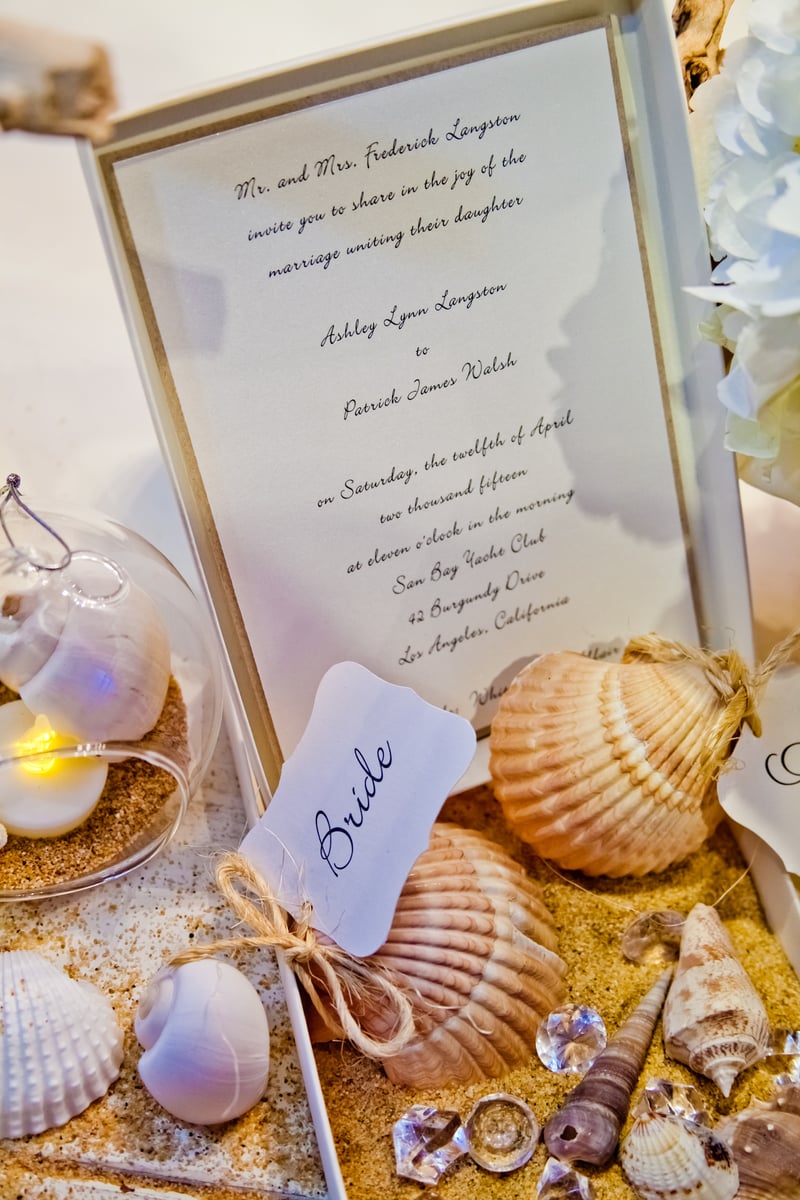 Mr. and Mrs. Frederick Langston
invite you to share in the joy of the
marriage uniting their daughter
Ashley Lynn Langston
to
Patrick James Walsh
on Saturday, the twelfth of April
two thousand fifteen
at eleven o'clock in the morning
San Bay Yacht Club
42 Burgundy Drive
Los Angeles, California
Affair
Bride